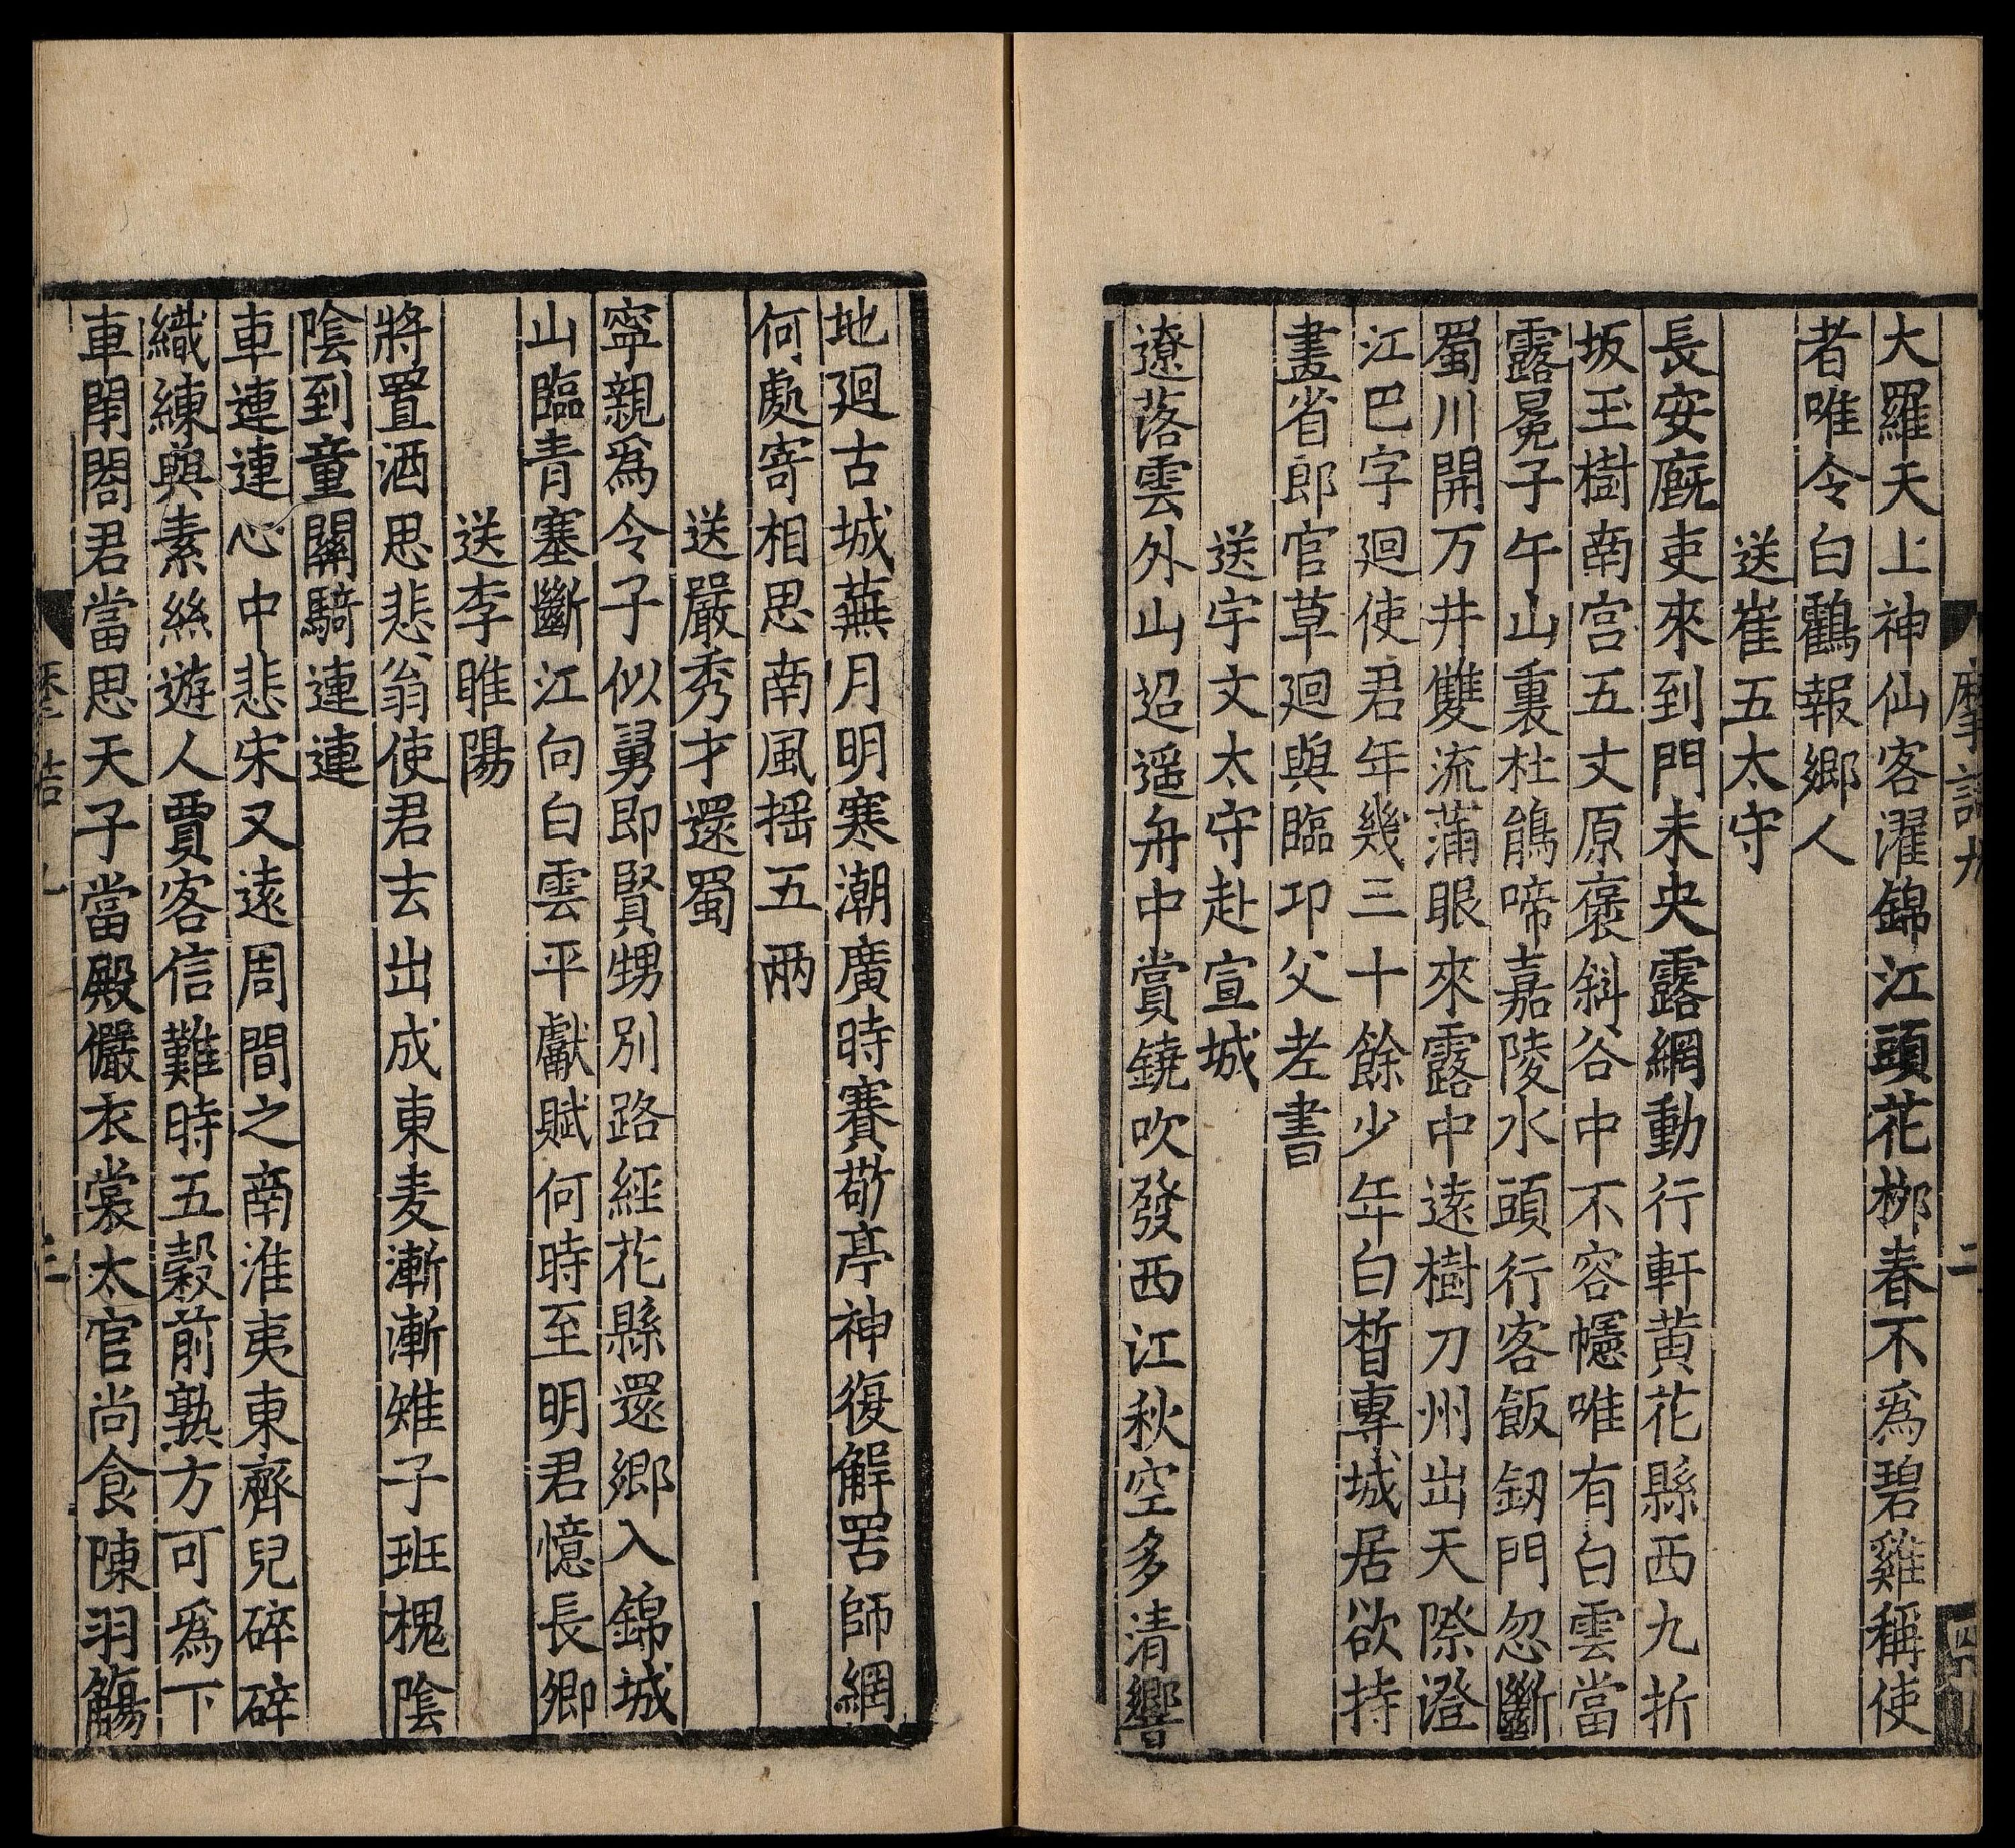 大羅天上神仙客濯錦江頭花桞春不爲碧雞稱使
者唯令白鸖報鄉人
送崔五太守
長安廐吏來到門朱㚑露網動行軒黄花縣西九折
坂玉樹南宫五丈原褒斜谷中不容幰唯有白雲當
露冕子午山裏杜鵑啼嘉陵水頭行客飯劒門忽斷
蜀川開万井雙流滿眼來露中遠樹刀州出天際澄
江巴字廻使君年幾三十餘少年白晳專城居欲持
畫省郎官草廻與臨邛父老書
送宇文太守赴宣城
遼落雲外山迢遥舟中賞鐃吹發西江秋空多清響
地廻古城蕪月明寒潮廣時賽敬亭神復解罟師網
何處寄相思南風揺五兩
送嚴秀才還蜀
寧親爲令子似舅即賢甥別路經花縣還鄉入錦城
山臨青塞斷江向白雲平獻賦何時至明君憶長卿
送李睢陽
將置酒思悲翁使君去出成東麦漸漸雉子班槐陰
陰到童關騎連連
車連連心中悲宋又遠周間之南淮夷東齊兒碎碎
織練與素絲遊人賈客信難時五穀前熟方可爲下
車閉閤君當思天子當殿儼衣裳太官尚食陳羽觴